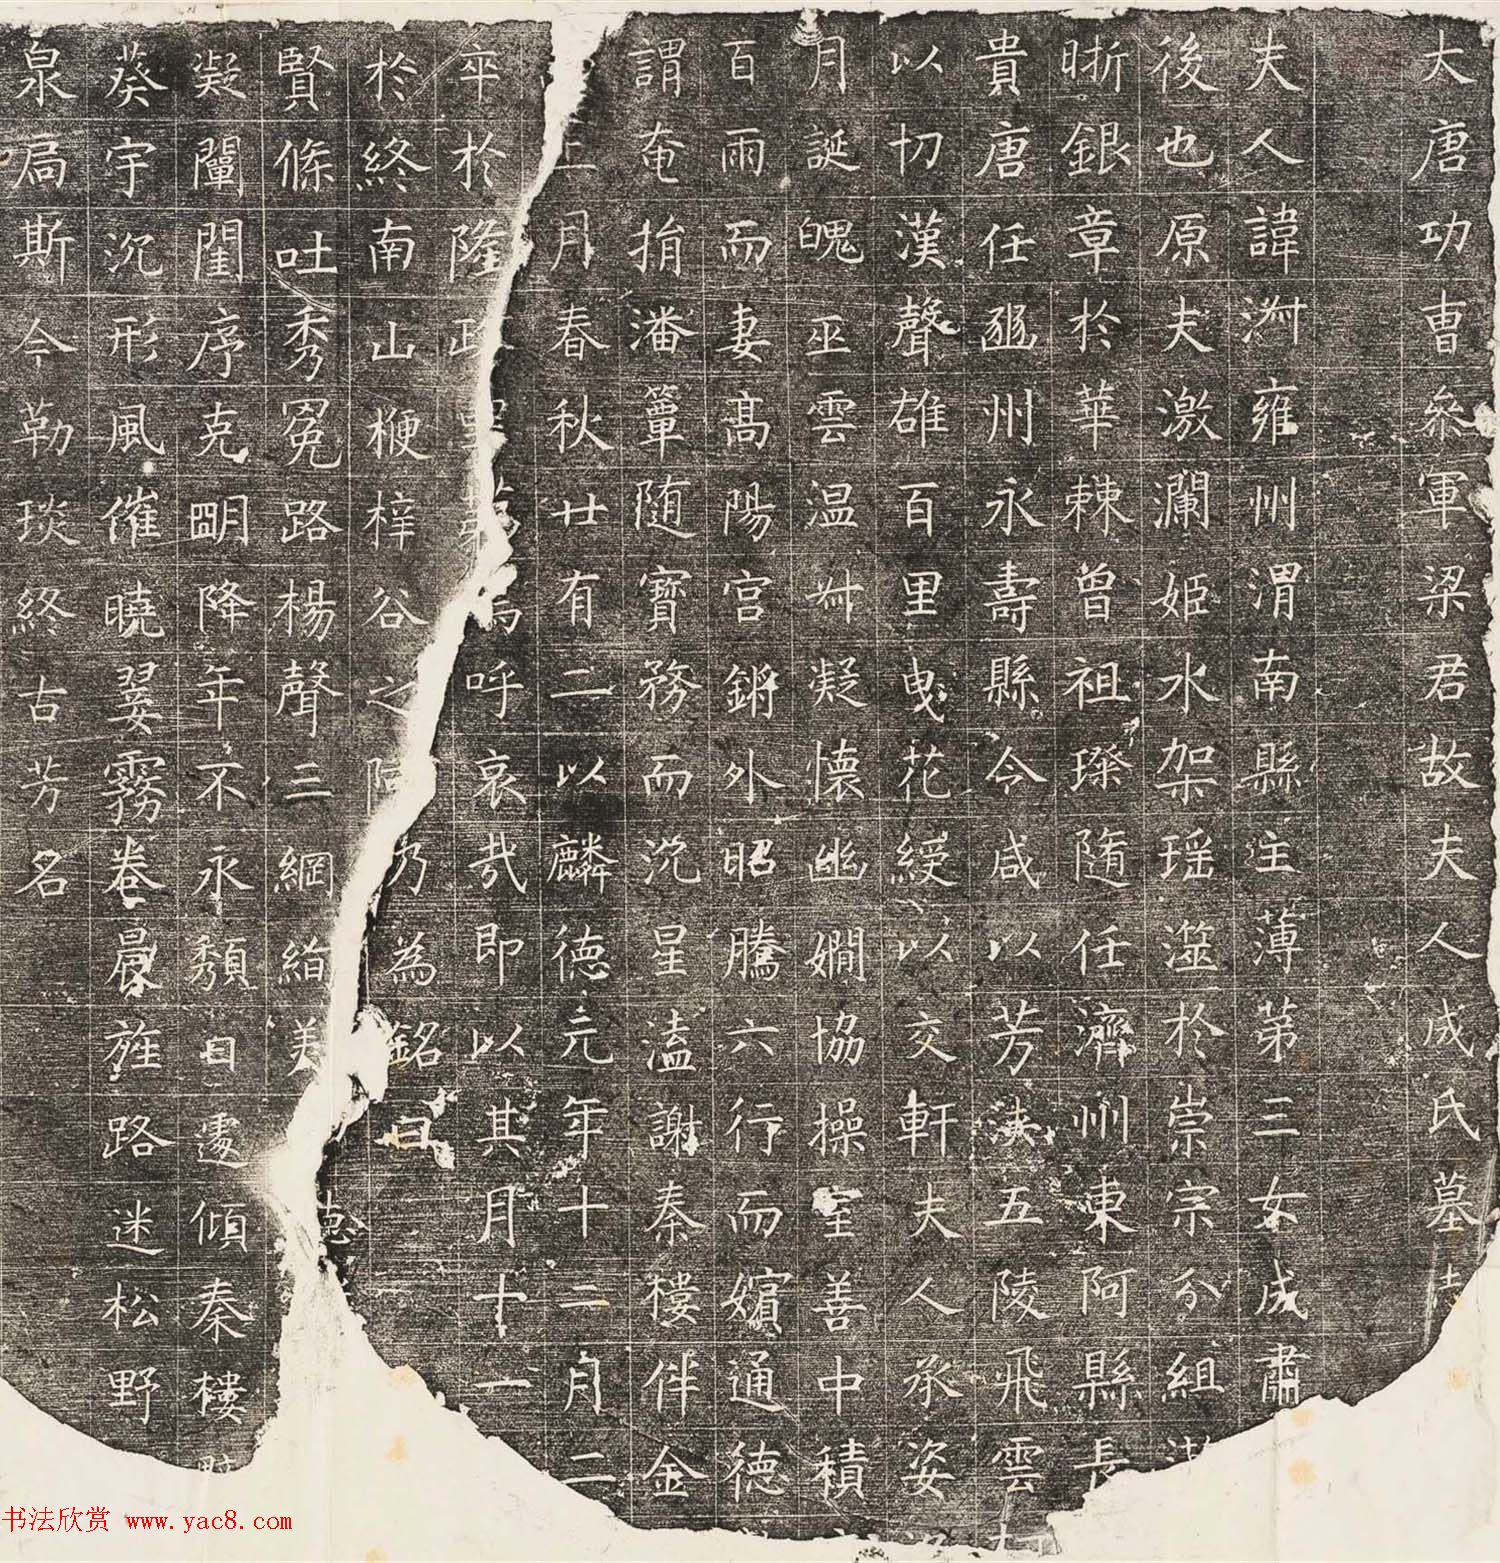 大唐功曹叅軍梁君故夫人成氏墓
夫人諱淑雍州渭南縣主薄第三女成肅
後也原夫激瀾姬水架瑶澨於崇宗分組
晣銀章於華棘曾祖璨隨任濟州東阿縣長
貴唐任豳州永壽縣令咸以芳浹五陵飛雲
以切漢聲雄百里曳花綬以交軒夫人承姿
月誕魄巫雲温州凝懷幽嫺協操室善中積
百兩而妻髙陽宫鏘外昭騰六行而嬪通德
謂奄捐潘簟随寶務而沉星溘謝秦樓伴金
二月春秋廿有二以麟德元年十二月二
卒於隆政里第嗚呼哀㢤即以其月十一
於終南山楩梓谷之 乃為銘曰
賢條吐秀冕路楊聲三綱絢美 德
凝闈閨序克明降年不永頽日遽傾秦樓
葵宇沉形風催曉翣霧卷晨旌路迷松野
泉扃斯今勒琰終古芳名
书法欣赏 www.yac8.com